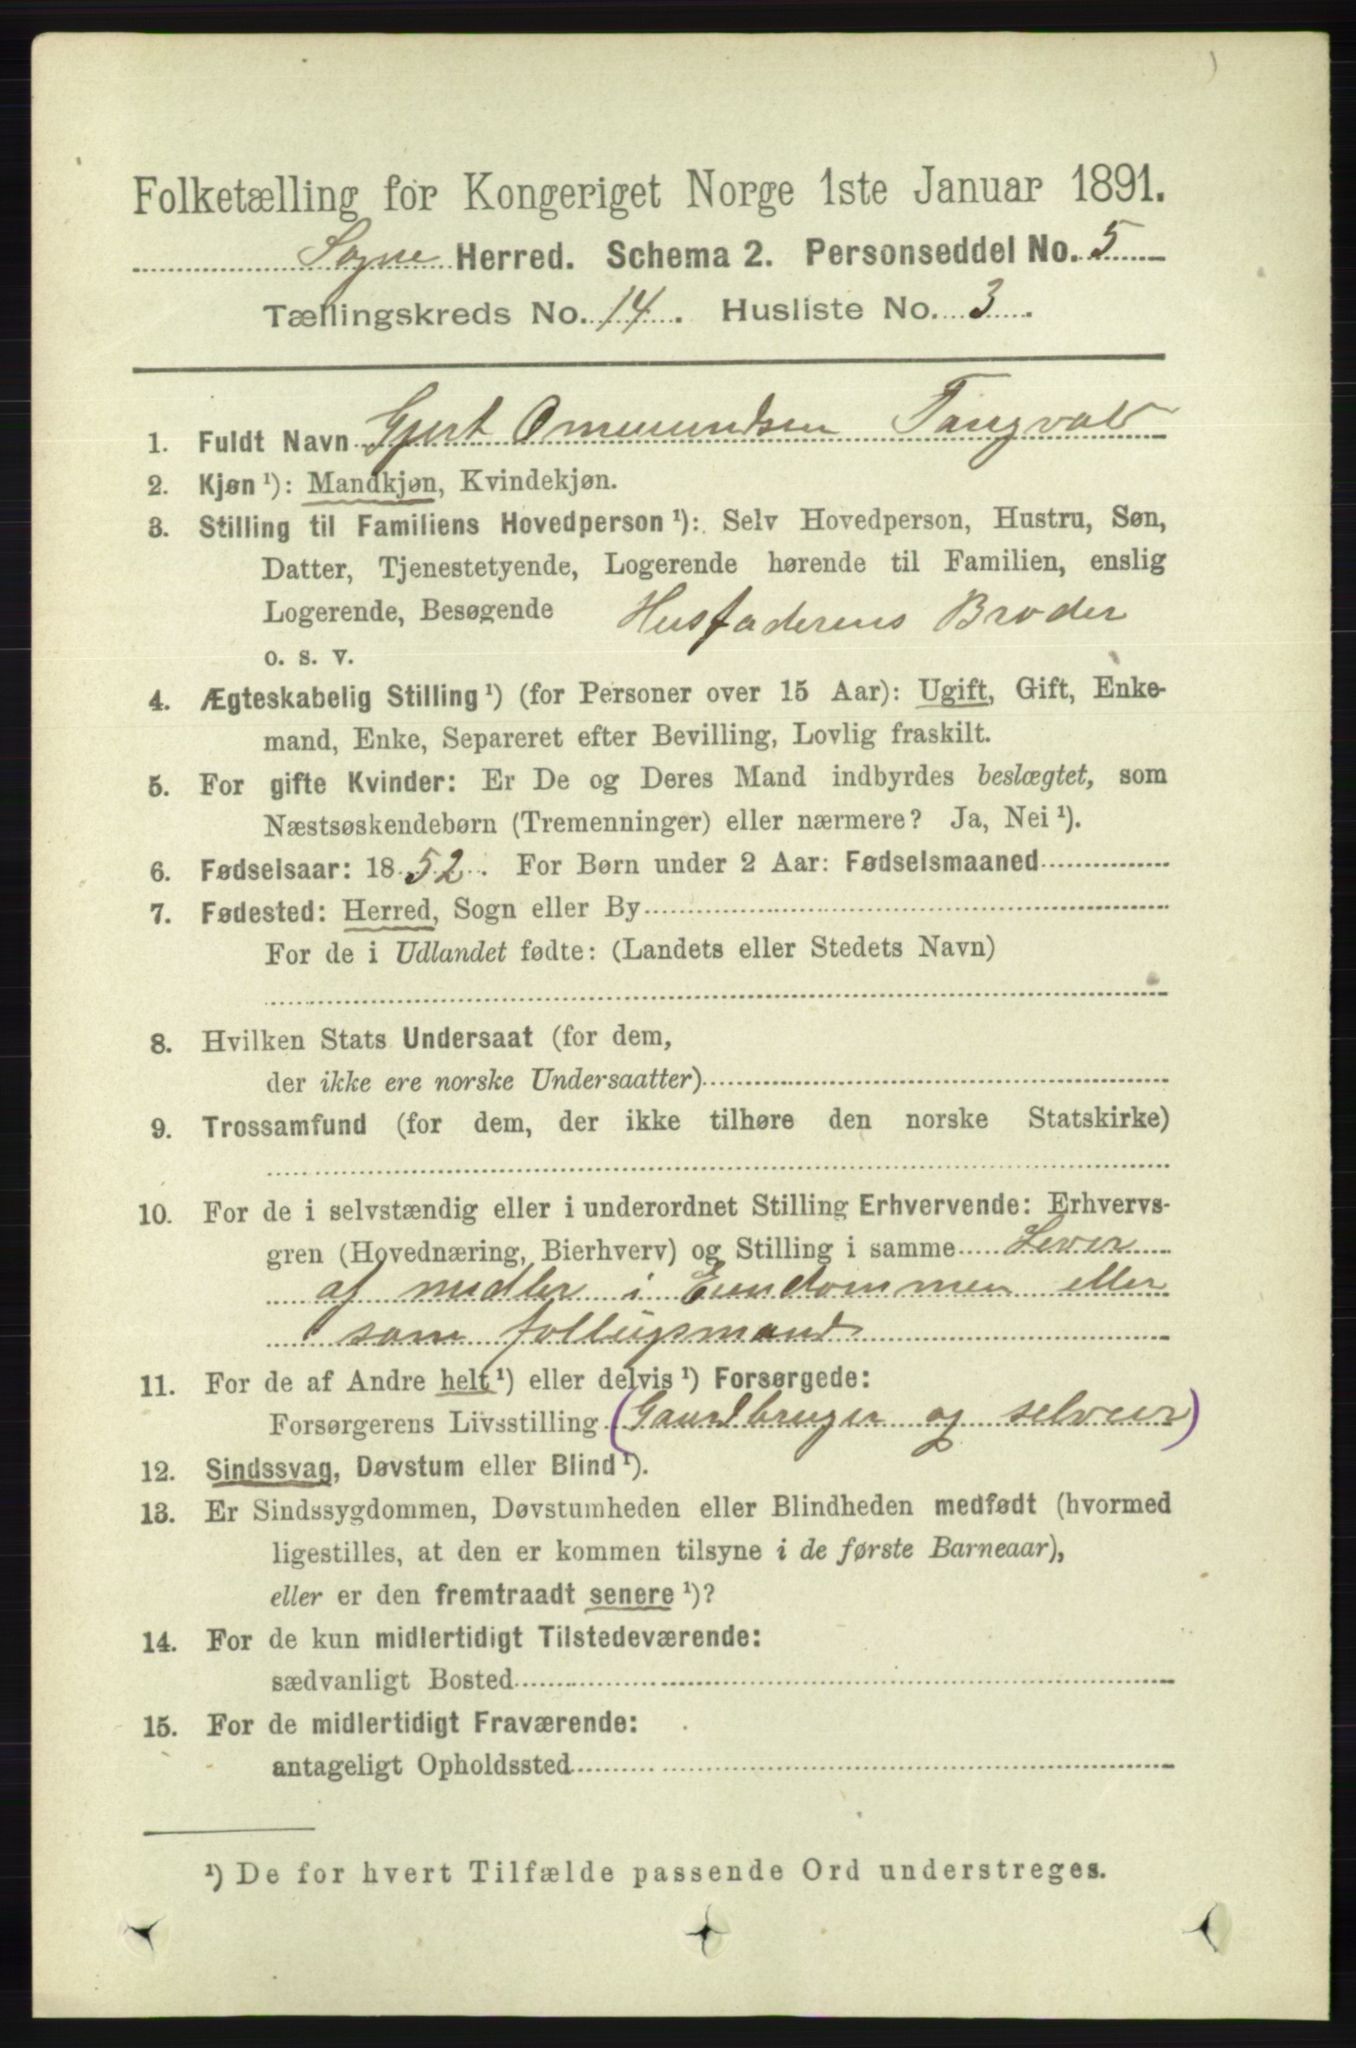 Folketælling for Kongeriget Norge 1ste Januar 1891.
Sogne Herred. Schema 2. Personseddel No. 5
Tællingskreds No. 14. Husliste No. 3.
1. Fuldt Navn Gjert Ommundsen Tangvald
2. Kjøn ¹): Mandkjøn, Kvindekjøn.
3. Stilling til Familiens Hovedperson ¹): Selv Hovedperson, Hustru, Søn,
Datter, Tjenestetyende, Logerende hørende til Familien, enslig
Logerende, Besøgende Husfaderens Broder
o. s. v.
4. Ægteskabelig Stilling ¹) (for Personer over 15 Aar): Ugift, Gift, Enke-
mand, Enke, Separeret efter Bevilling, Lovlig fraskilt.
5. For gifte Kvinder: Er De og Deres Mand indbyrdes beslægtet, som
Næstsøskendebørn (Tremenninger) eller nærmere? Ja, Nei ¹).
6. Fødselsaar: 1852. For Børn under 2 Aar: Fødselsmaaned
7. Fødested: Herred, Sogn eller By
For de i Udlandet fødte: (Landets eller Stedets Navn)
8. Hvilken Stats Undersaat (for dem,
der ikke ere norske Undersaatter)
9. Trossamfund (for dem, der ikke tilhøre den norske Statskirke)
10. For de i selvstændig eller i underordnet Stilling Erhvervende: Erhvervs-
gren (Hovednæring, Bierhverv) og Stilling i samme Lever
af midler i Eiendommen eller
som follugsmand
11. For de af Andre helt ¹) eller delvis ¹) Forsørgede:
Forsørgerens Livsstilling (Gaardbruger og selveier)
12. Sindssvag, Døvstum eller Blind ¹).
13. Er Sindssygdommen, Døvstumheden eller Blindheden medfødt (hvormed
ligestilles, at den er kommen tilsyne i de første Barneaar),
eller er den fremtraadt senere ¹)?
14. For de kun midlertidigt Tilstedeværende:
sædvanligt Bosted
15. For de midlertidigt Fraværende:
antageligt Opholdssted
¹) De for hvert Tilfælde passende Ord understreges.